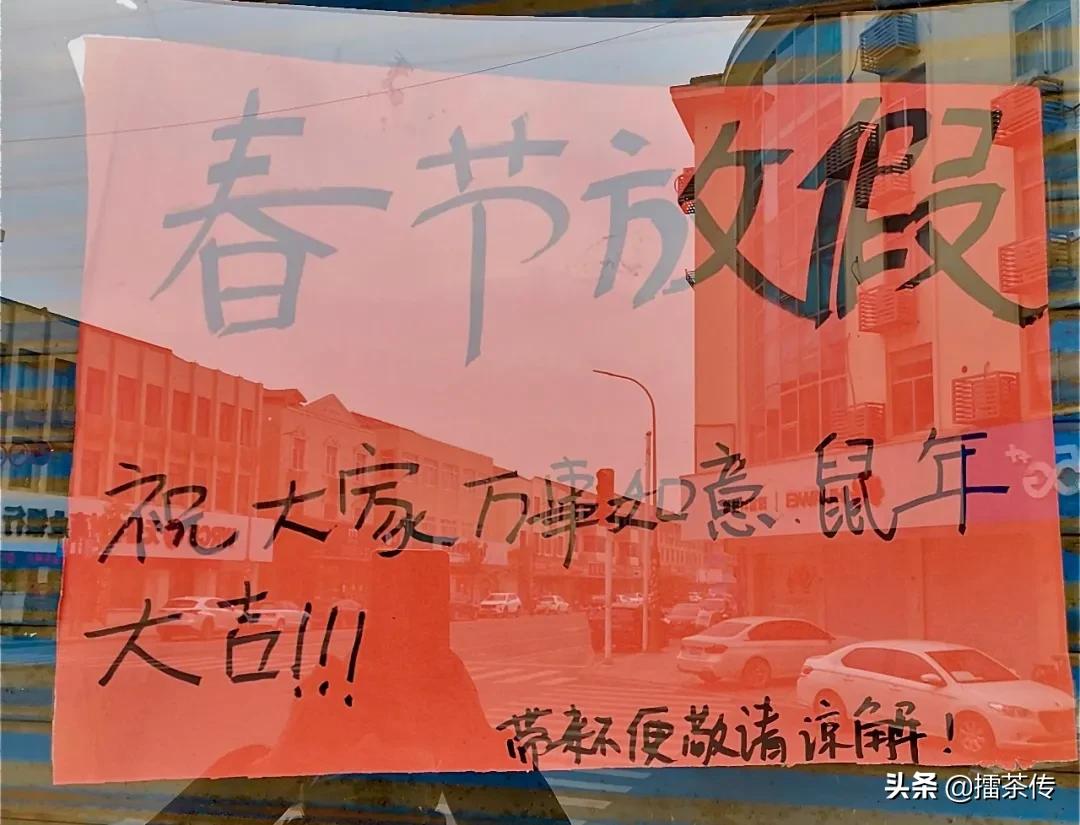 春节放假
祝大家万事如意.鼠年
大吉!!!
带来不便敬请谅解!
头条 @擂茶传